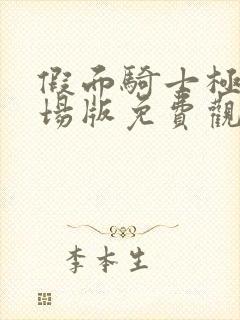 假面騎士極
場版免費觀
李本生